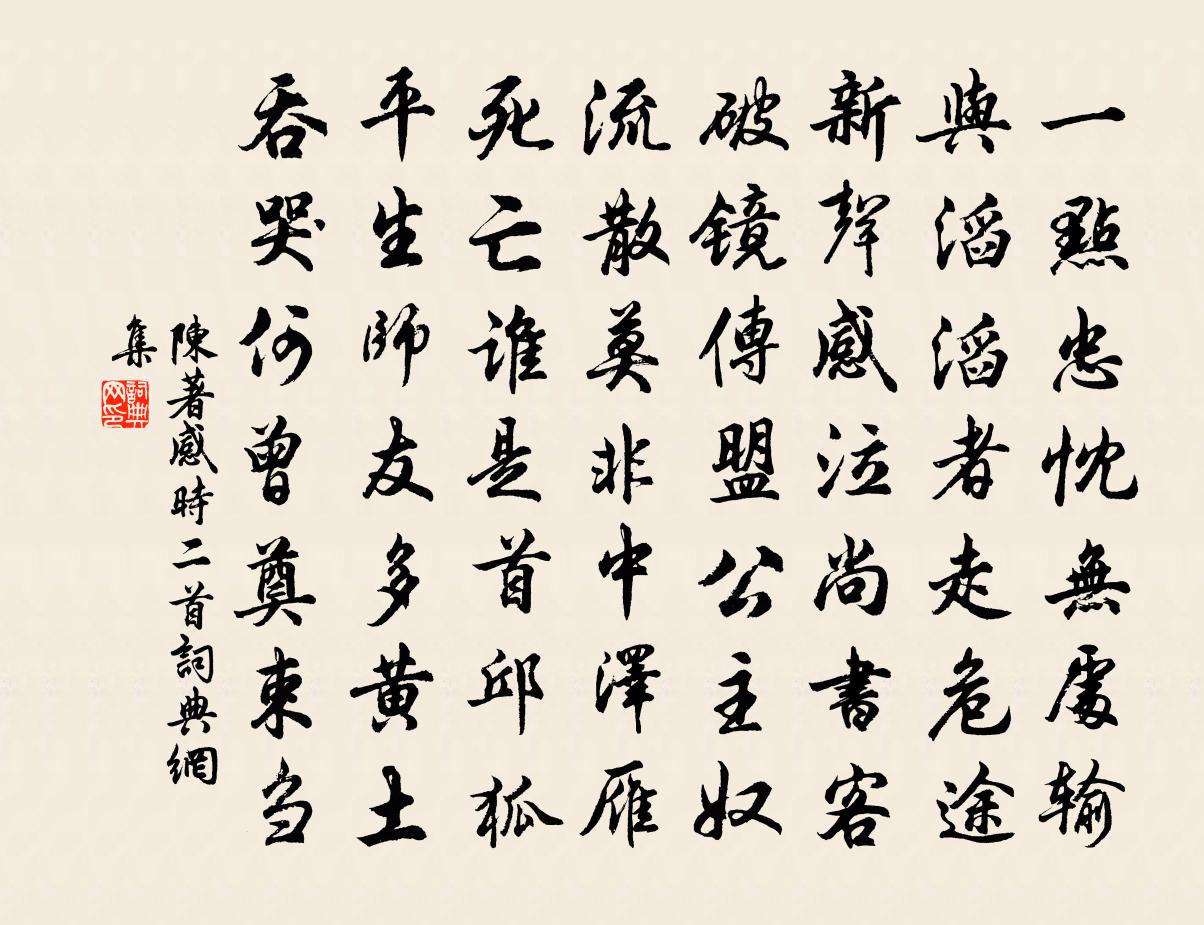 一點忠忱無處輸
與滔滔者走危途
新聲感泣尚書客
破鏡傳盟公主奴
流散莫非中澤雁
死亡誰是首邱狐
平生師友多黃土
吞哭何曾奠束刍
陳著感時二首詞典網
集
詞典
网印